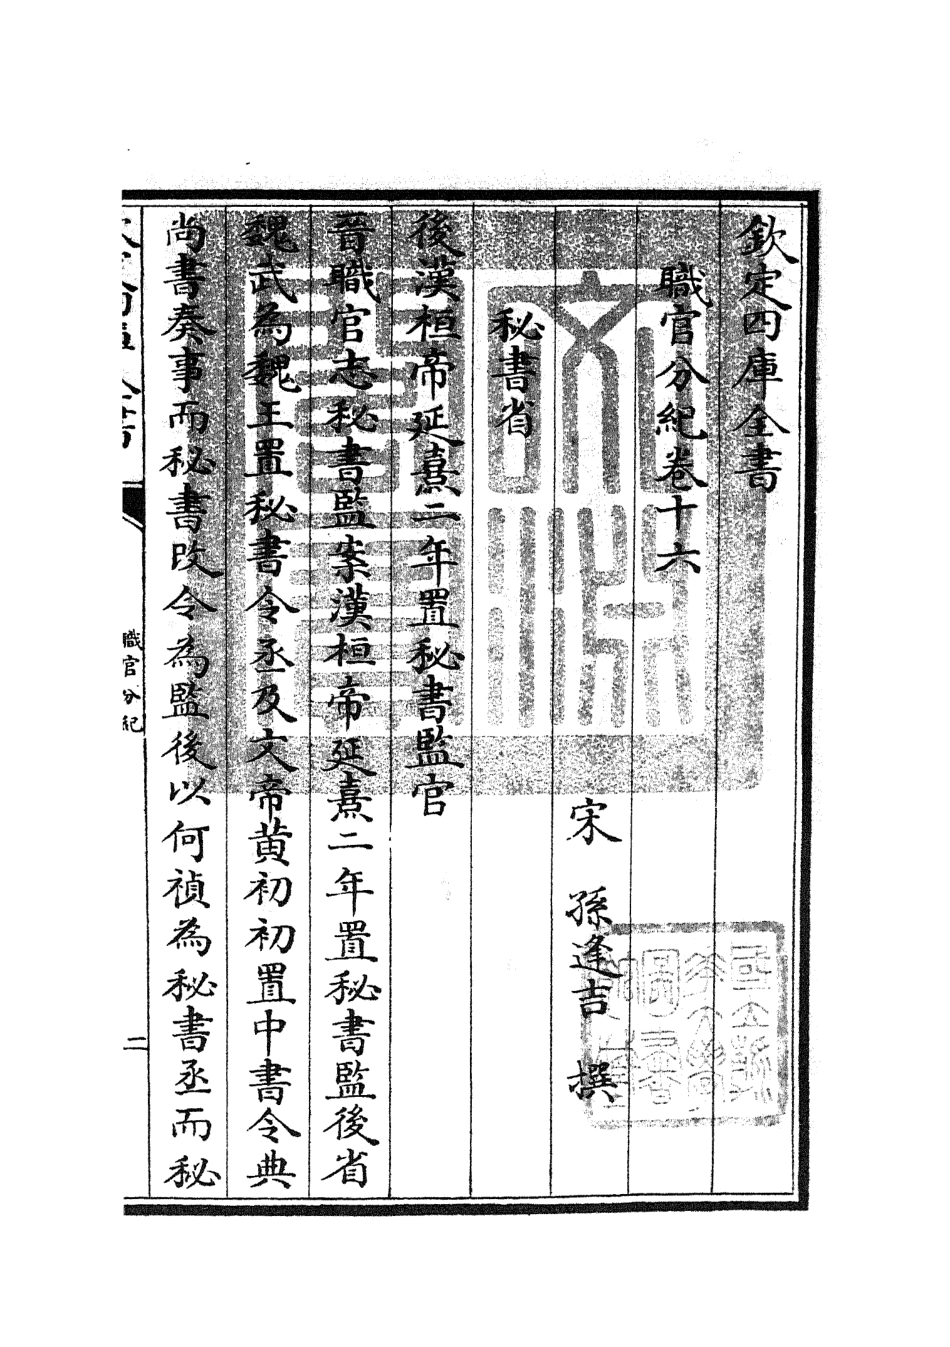 欽定四庫全書
職官分紀卷十六
宋　孫逢吉　撰
秘書省
後漢桓帝延熹二年置秘書監官
晉職官志秘書監案漢桓帝延熹二年置秘書監後省
魏武為魏王置秘書令丞及文帝黄初初置中書令典
尚書奏事而秘書改令為監後以何禎為秘書丞而秘
職官分紀
二